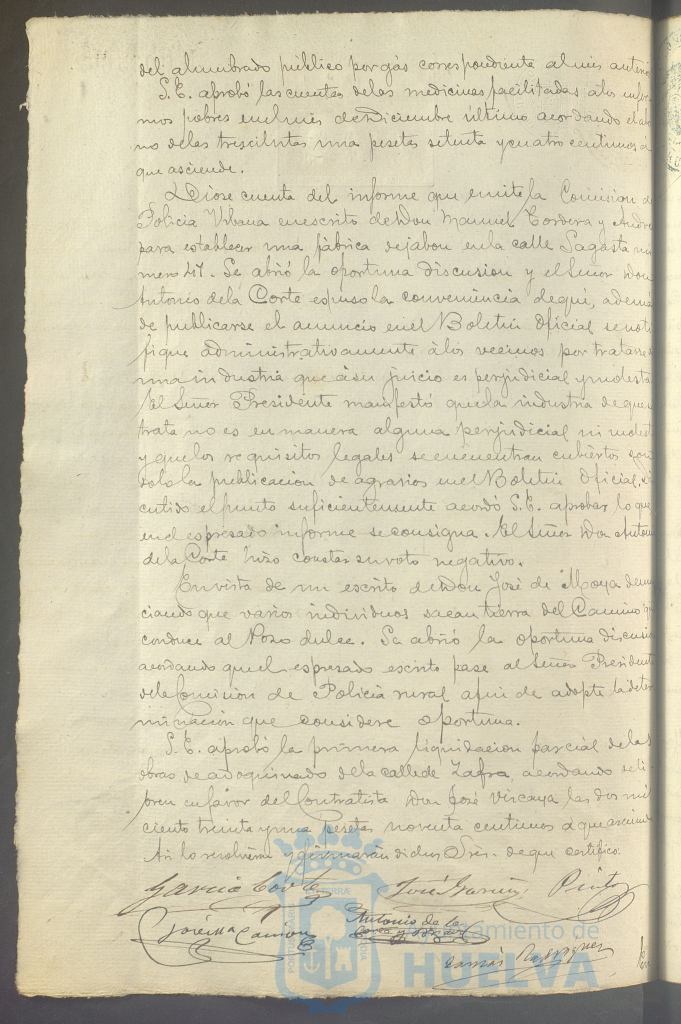 del alumbrado público por gás correspondiente al mes anterior
S.E. aprobó las cuentas de las medicinas facilitadas á los enfer
mos pobres en el mes de Diciembre último acordando el abo
no de las trescientas una pesetas setenta y cuatro centimos a
que asciende.
Diose cuenta del informe que emite la Comision de
Policia Urbana en escrito de Don Manuel Cordero y André
para establecer una fábrica de jabon en la calle Sagasta nu
mero 47. Se abrió la oportuna discusion y el Señor Don
Antonio de la Corte espuso la conveniencia de qué, ademas
de publicarse el anuncio en el Boletin Oficial se noti
fique administrativamente á los vecinos por tratarse
una industria que á su juicio es perjudicial y molesta
El Señor Presidente manifestó que la industria de que
trata no es en manera alguna perjudicial ni molesta
y que los requisitos legales se encuentran cubiertos con
solo la publicacion de agrarios en el Boletin Oficial. Dis
cutido el punto suficientemente acordó S.E. aprobar lo que
en el espresado informe se consigna. El Señor Don Antonio
de la Corte hizo constar su voto negativo.
En vista de un escrito de Don José de Moya denun
ciando que varios individuos sacan tierra del Camino que
conduce al Pozo dulce. Se abrió la oportuna discusion
acordando que el espresado escrito pase al Señor Presidente
de la Comision de Policia rural a fin de adopte la deter
minacion que considere oportuna.
S.E. aprobó la primera liquidacion parcial de las
obras de adoquinado de la calle de Zafra, acordando se li
bren en favor del Contratista Don José Vizcaya las dos mil
ciento treinta y una pesetas noventa centimos a que asciende
Asi lo resolvieron y firmaran dichos Sres. de que certifico.
Garcia Corte José Garcia Pinto
José Ma Camion Antonio de la
Corte y
Tomás
Ayuntamiento de
HUELVA